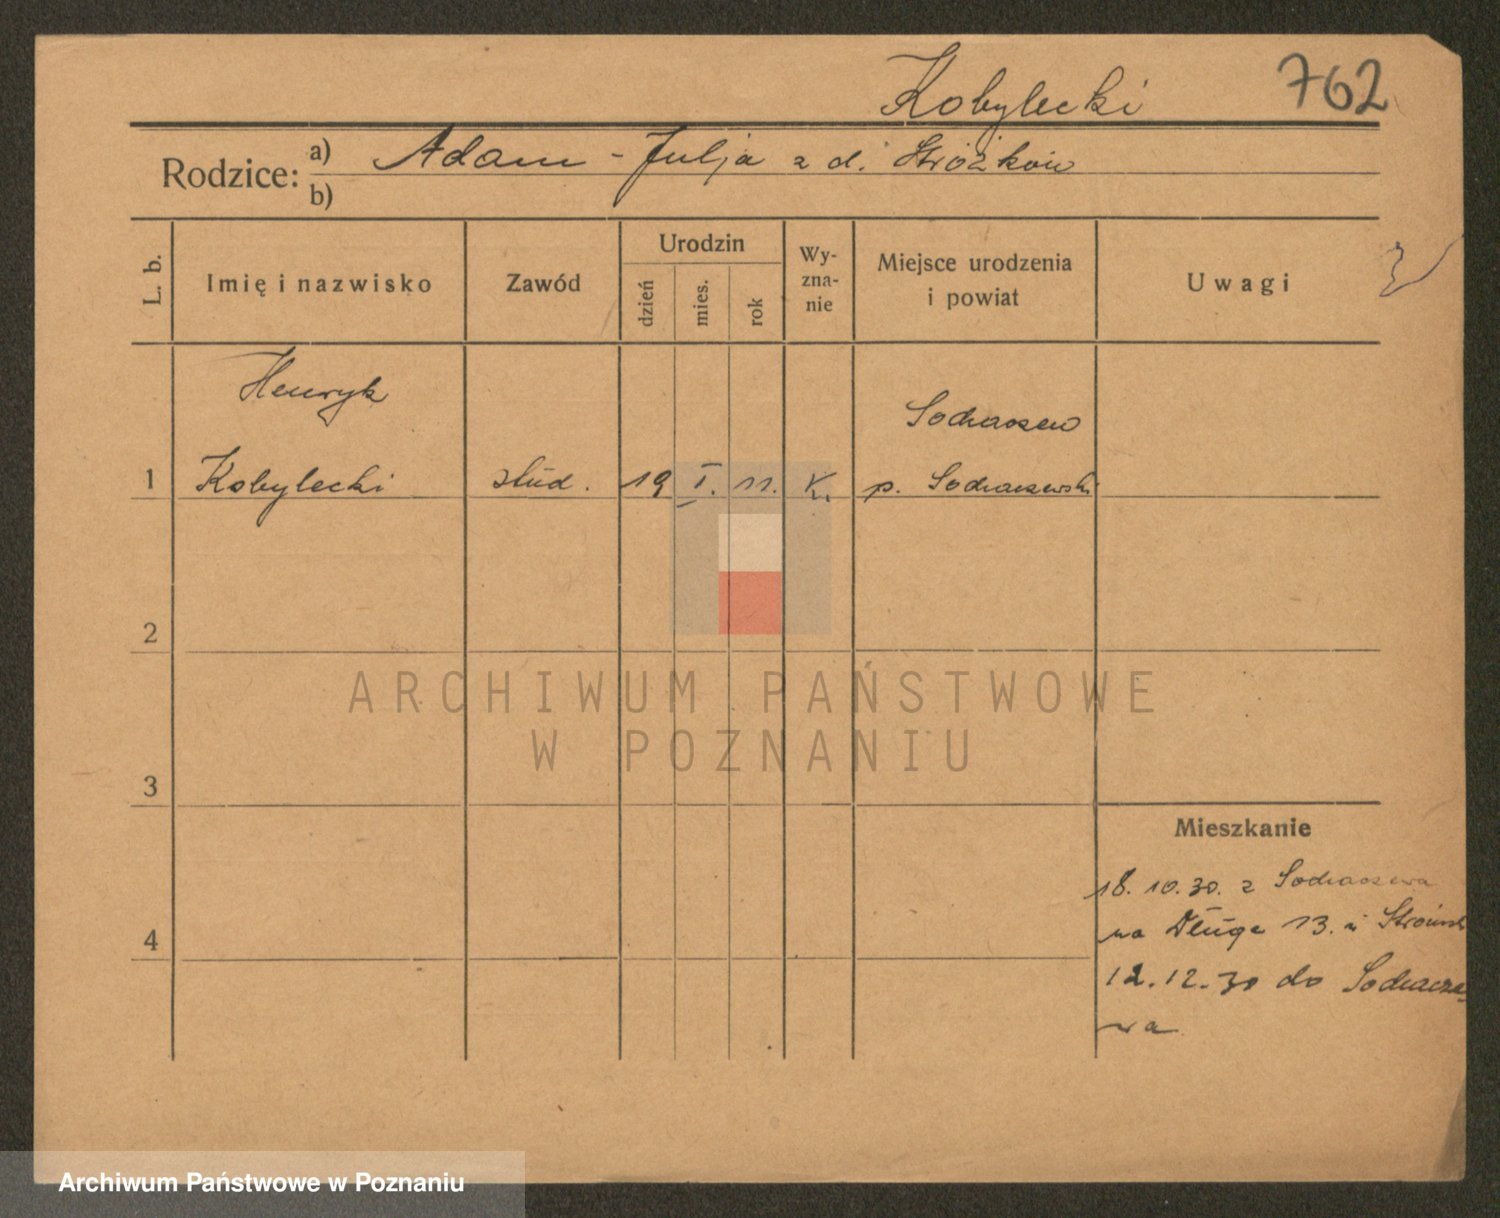 Kobylecki 762
Rodzice: a) Adam - Julja z d. Stróżków
b)
L. b. Imię i nazwisko Zawód Urodzin dzień mies. rok Wy-zna-nie Miejsce urodzenia i powiat Uwagi
Henryk Sochaczew
1 Kobylecki stud. 19 I. 11. K. p. Sochaczewski
2
ARCHIWUM PAŃSTWOWE
W POZNANIU
3
Mieszkanie
18.10.30. z Sochaczewa
4 na Długa 13. u
12.12.30 do Sochacze-
wa
Archiwum Państwowe w Poznaniu